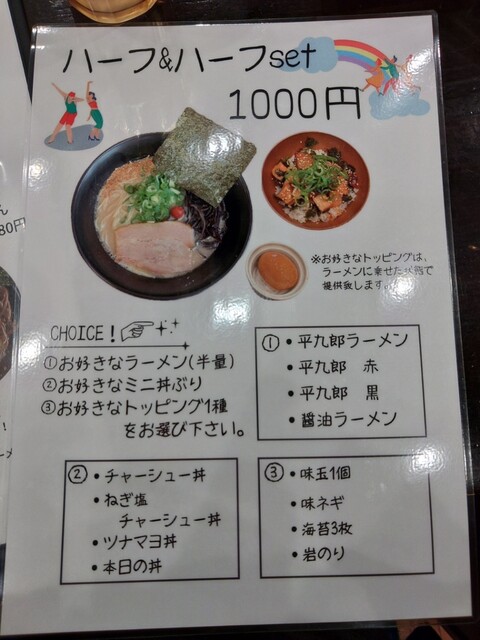 ハーフ&ハーフset
1000円
※お好きなトッピングは、
ラーメンに乗せた状態で
提供致します。
CHOICE!
①お好きなラーメン(半量)
②お好きなミニ丼ぶり
③お好きなトッピング1種
をお選び下さい。
①・平九郎ラーメン
・平九郎 赤
・平九郎 黒
・醤油ラーメン
②・チャーシュー丼
・ねぎ塩
チャーシュー丼
・ツナマヨ丼
・本日の丼
③・味玉1個
・味ネギ
・海苔3枚
・岩のり
ん
80円